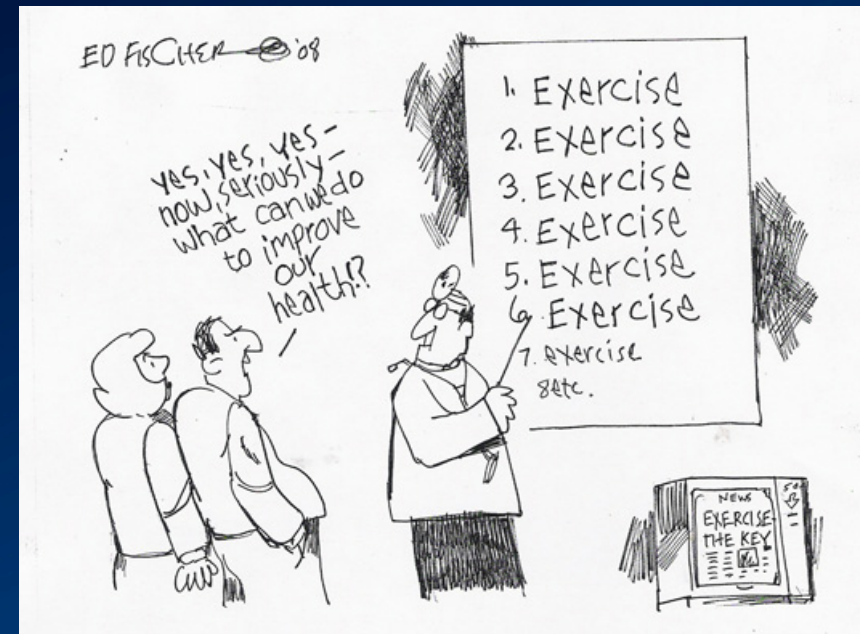 ED FISCHER '08
yes, yes, yes-
now, seriously-
what can we do
to improve
our
health!?
1. Exercise
2. Exercise
3. Exercise
4. Exercise
5. Exercise
6. Exercise
7. exercise
8 etc.
NEWS
50¢
EXERCISE-
THE KEY